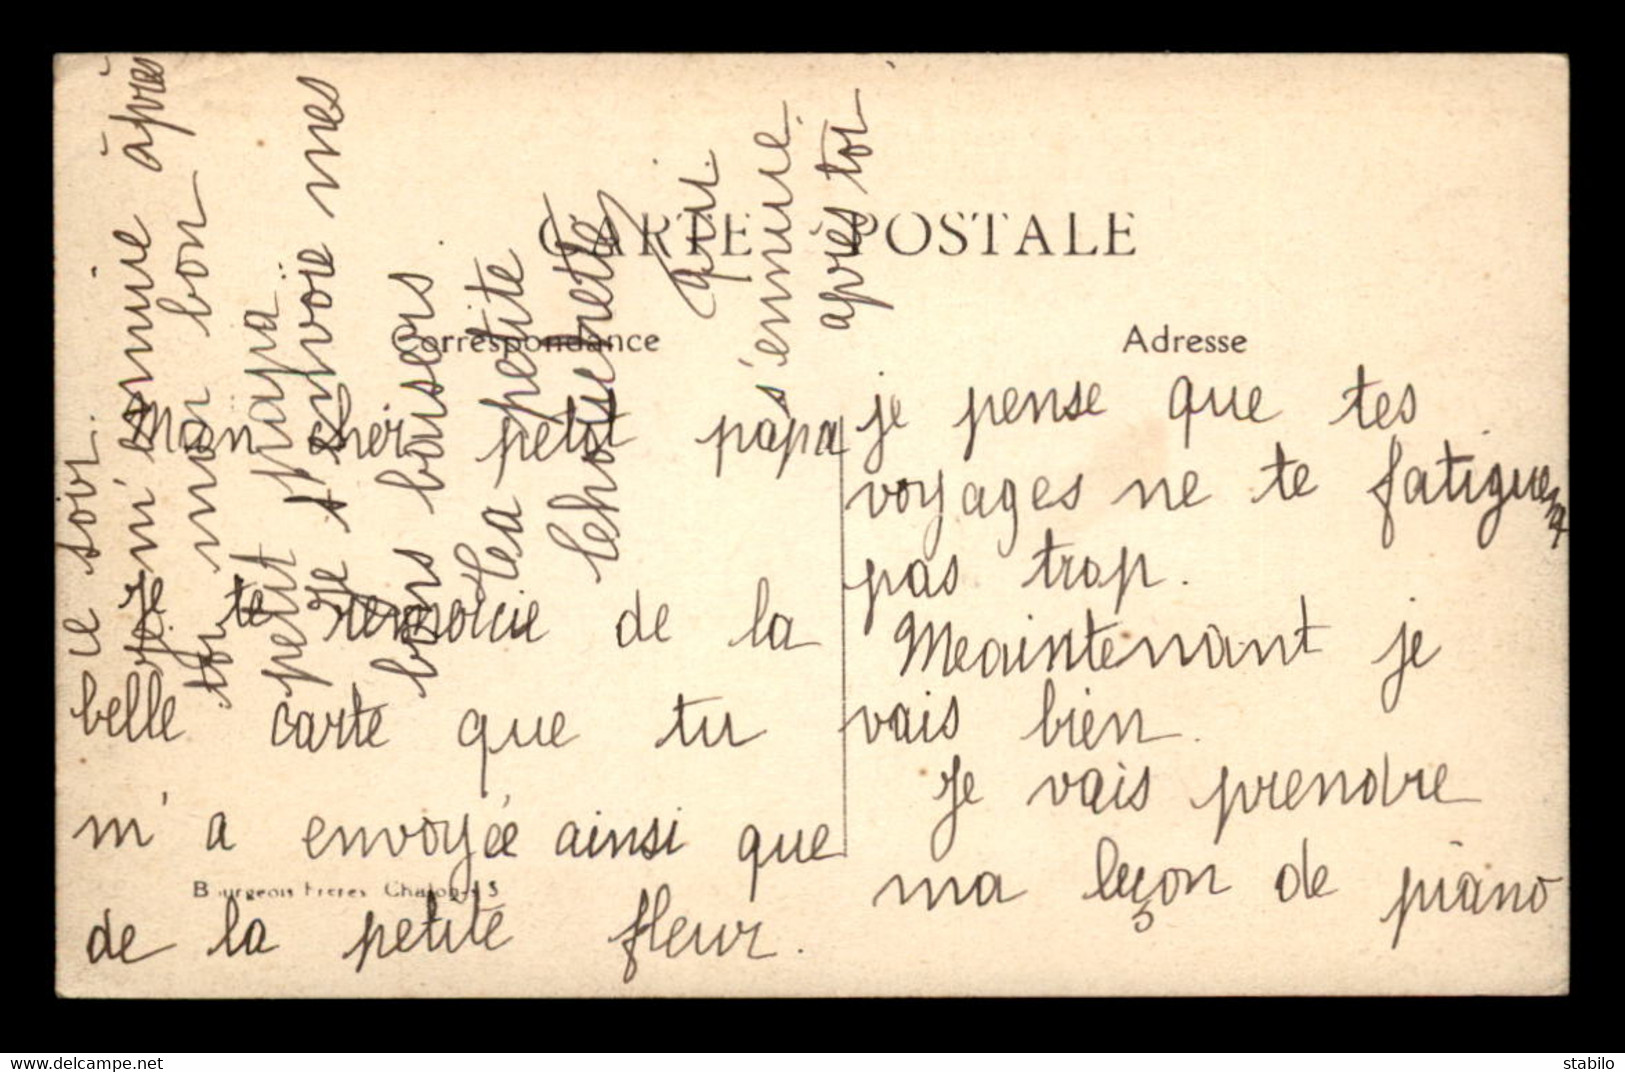 CARTE POSTALE
Correspondance
Adresse
Mon cher petit papa
Je te remercie de la
belle carte que tu
m'a envoyée ainsi que
de la petite fleur.
je pense que tes
voyages ne te fatiguent
pas trop.
Meaintenant je
vais bien.
Je vais prendre
ma leçon de piano
ce soir.
je m'ennuie après
toi mon bon
petit papa
Je t'envoie mes
bons baisers
ta petite
qui
s'ennuie
apres toi
Bourgeois Frères Chalon-s-S
www.delcampe.net
stabilo